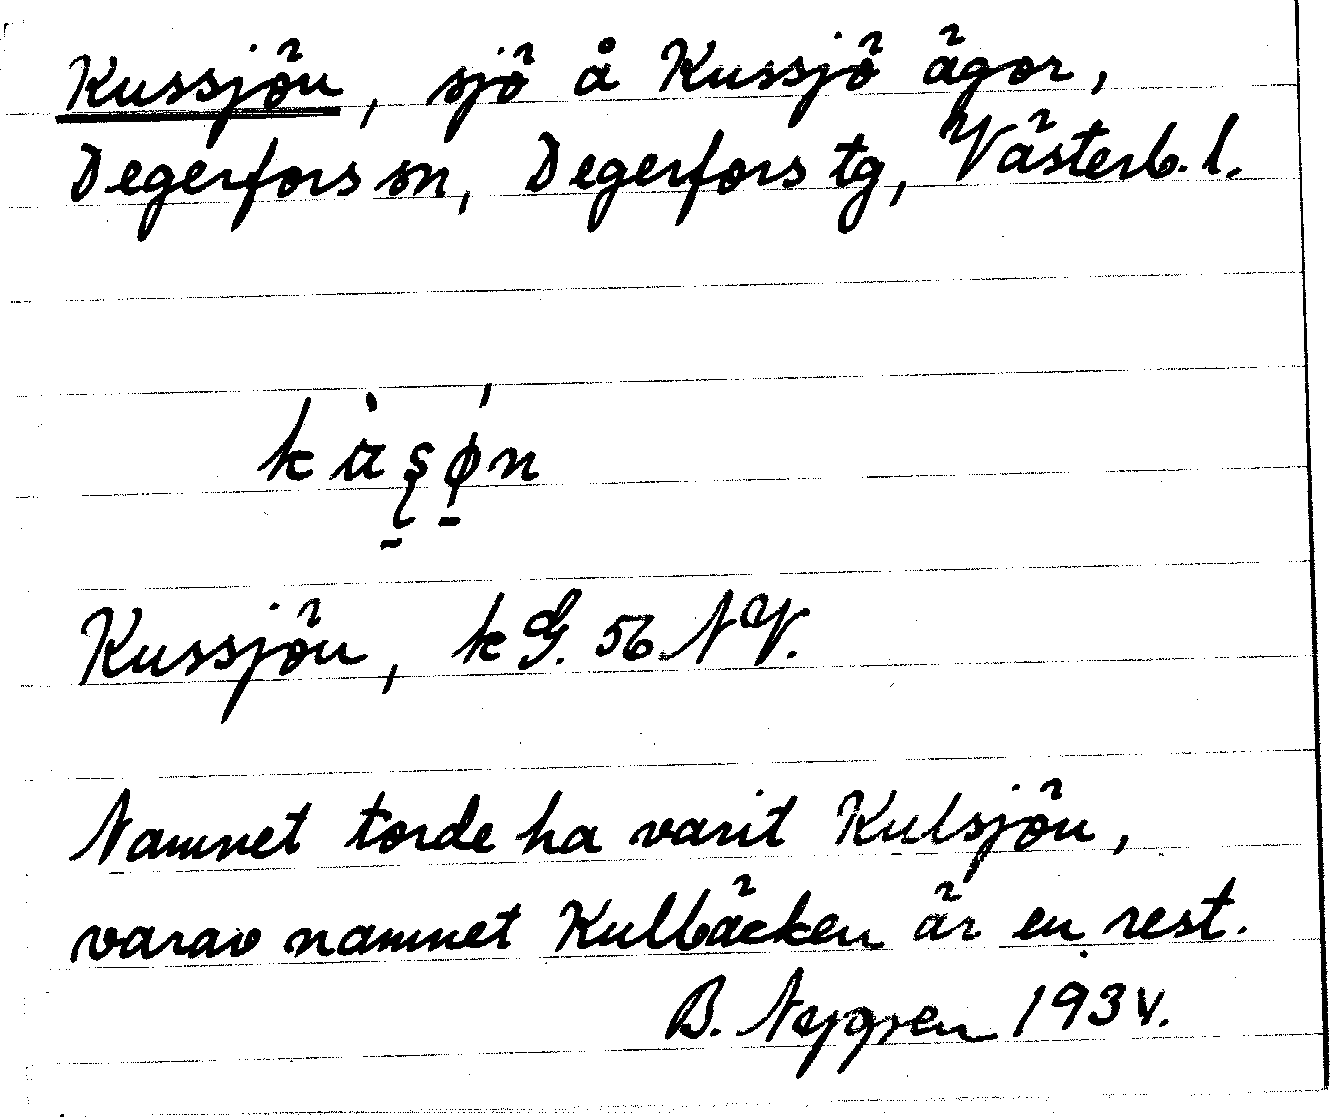 Kussjön, sjö å Kussjö ägor,
Degerfors sn, Degerfors tg, Västerb. l.
Kussjön, kG. 56 NV.
Namnet torde ha varit Kulsjön,
varav namnet Kulbäcken är en rest.
B. Nygren 193